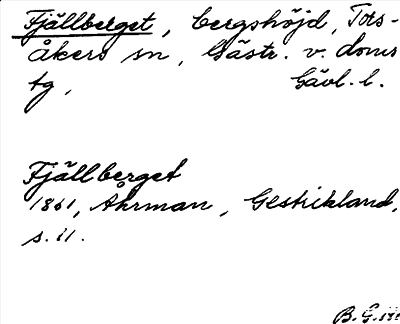 Fjällberget, bergshöjd, Tors-
åkers sn, Gästr. v. doms
tg, Gävl. l.
Fjällberget
1861, Åhrman, Gestrikland,
s. 11.
B. G.